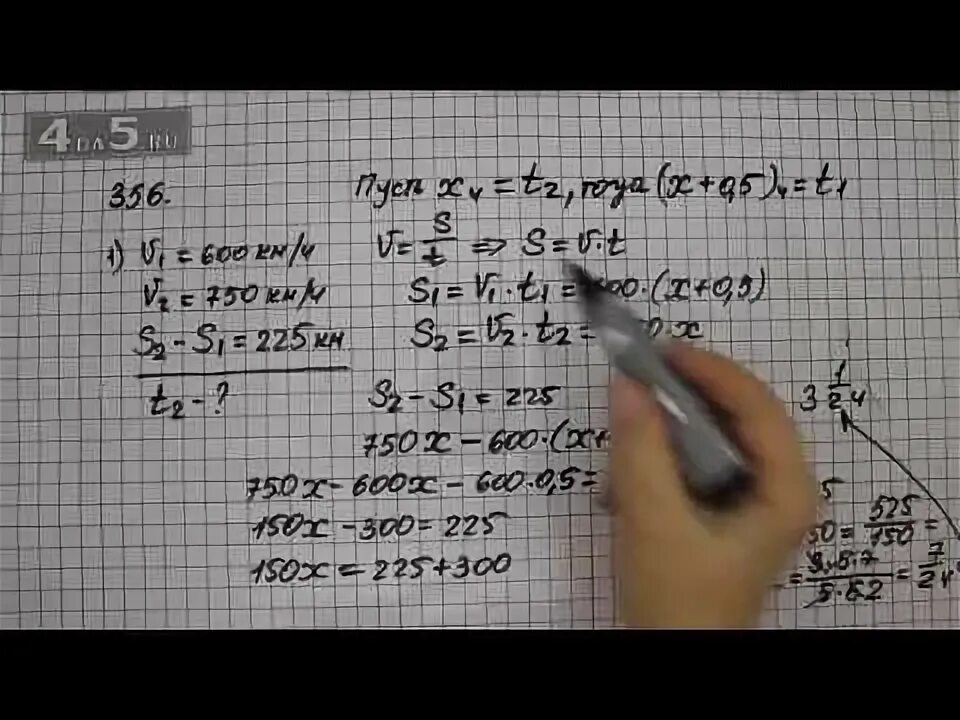 4 5.
356.
1) V₁ = 600 км/ч
V₂ = 750 км/ч
S₂ - S₁ = 225 км
t₂ - ?
Пусть x ч = t₂, тогда (x + 0,5) ч = t₁
V = S/t ⇒ S = V·t
S₁ = V₁ · t₁ = 00·(x+0,5)
S₂ = V₂ · t₂ = 0·x
S₂ - S₁ = 225
750x - 600·(x+
750x - 600x - 600·0,5 =
150x - 300 = 225
150x = 225 + 300
3 1/2 ч
5
50 = 525/150 =
= 3·5·7/3·5·2 = 7/2 ч